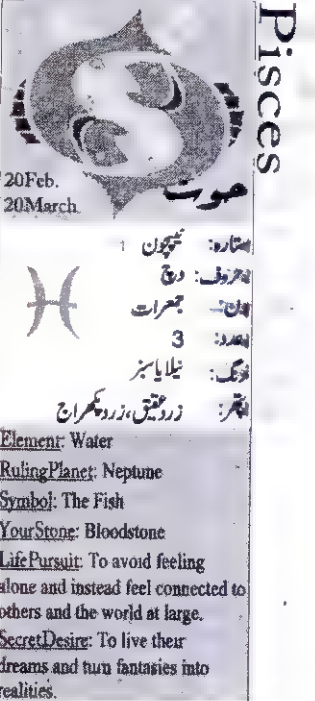 Pisces
20Feb.
20March
حوت
ستارہ: نیپچون
حروف: د چ
دن: جمعرات
عدد: 3
رنگ: نیلا یا سبز
پتھر: زرد عقیق، زرد پکھراج
Element: Water
RulingPlanet: Neptune
Symbol: The Fish
YourStone: Bloodstone
LifePursuit: To avoid feeling
alone and instead feel connected to
others and the world at large.
SecretDesire: To live their
dreams and turn fantasies into
realities.